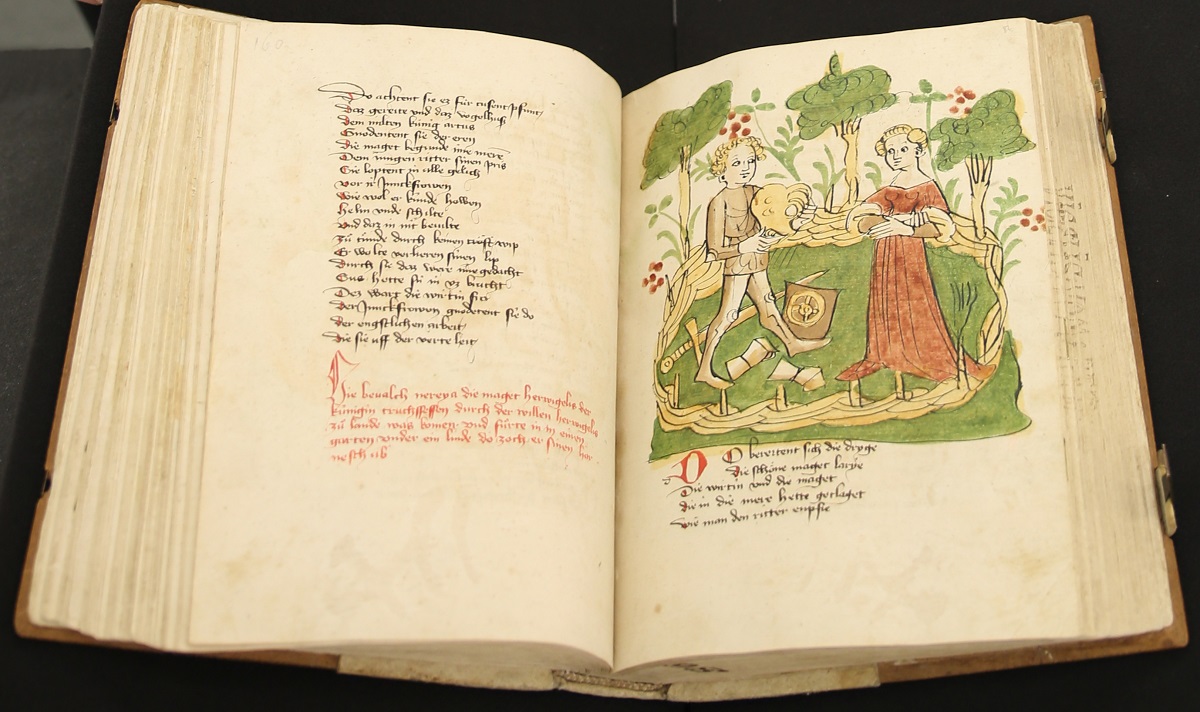 160
Do achtent sie ez für tusent pfunt
Daz gereite und daz vogelhus
dem milten künig artus
Gnodentent sie der eren
die maget begunde ime mere
Dem jungen ritter sinen pris
Sie loptent in alle gelich
vor ir Junckfrowen
wie wol er kunde howen
helm vnde schilte
vnd daz in nit beuilte
zü tünde durch keinen wip
Er wolte verlieren sinen lip
durch sie daz were ime gedacht
Sus hette sü in vz brocht
Dez warg die wirtin fro
der Junckfrowen gnodetent sie do
der engstlichen arbeit
die sie uff der verte leit
Die bevalch nereya die maget herwigelis der
künigin truchssesson durch der willen herwigelis
zü lande was komen vnd fürte in in einen
garten vnder ein linde do zoch er sinen har
nesch ab
DO bereitent sich die dryge
die schöne maget larye
Die wirtin vnd die maget
die in die mere hette geclaget
wie man den ritter enpfie